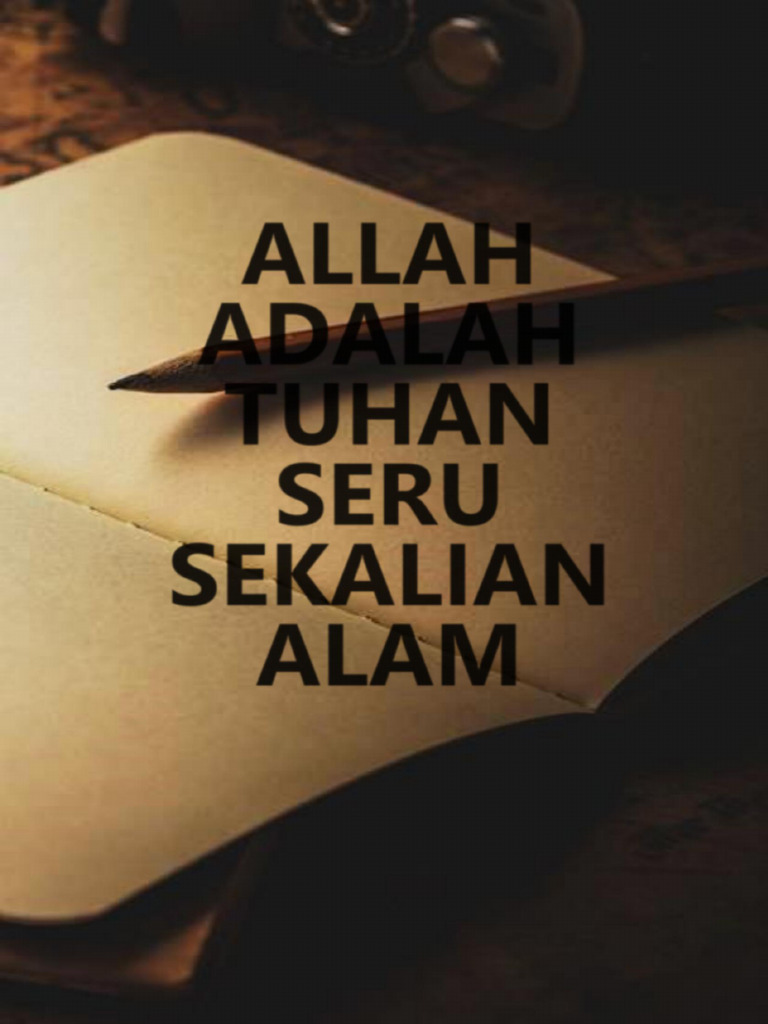 ALLAH
ADALAH
TUHAN
SERU
SEKALIAN
ALAM